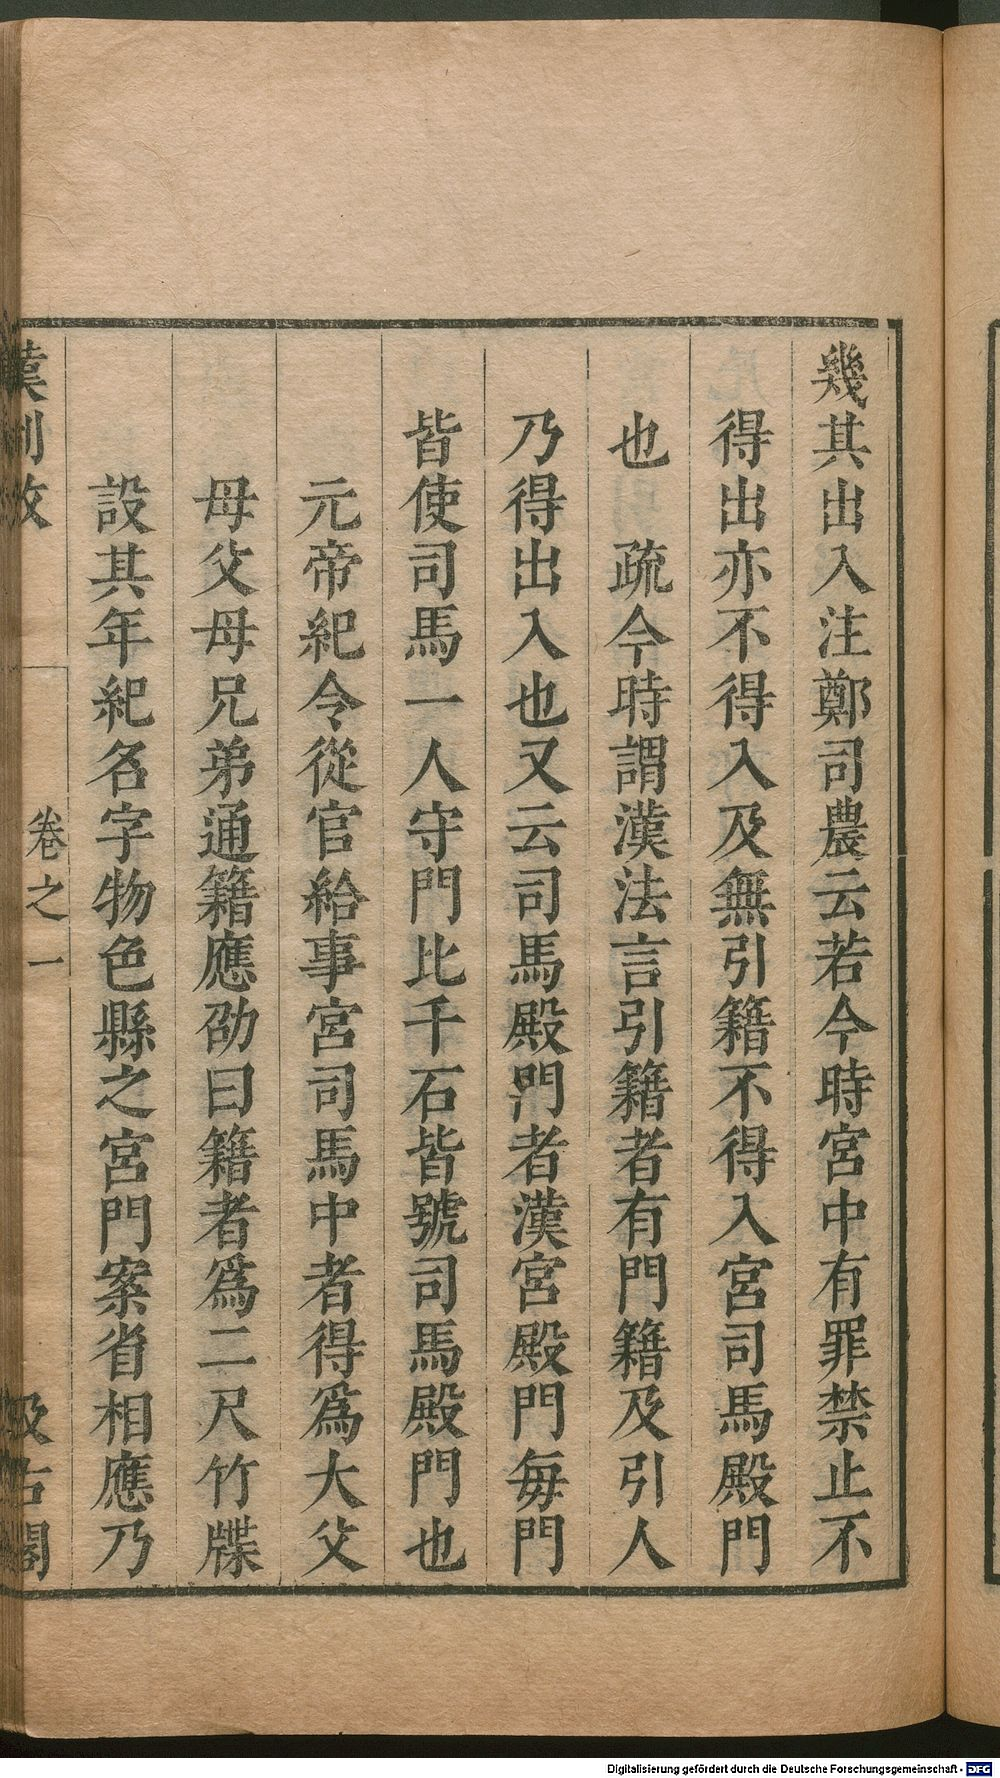 幾其出入注鄭司農云若今時宮中有罪禁止不
得出亦不得入及無引籍不得入宮司馬殿門
也　疏今時謂漢法言引籍者有門籍及引人
乃得出入也又云司馬殿門者漢宮殿門每門
皆使司馬一人守門比千石皆號司馬殿門也
元帝紀令從官給事宮司馬中者得爲大父
母父母兄弟通籍應劭曰籍者爲二尺竹牒
設其年紀名字物色縣之宮門案省相應乃
漢制攷　卷之一　汲古閣
Digitalisierung gefördert durch die Deutsche Forschungsgemeinschaft - DFG